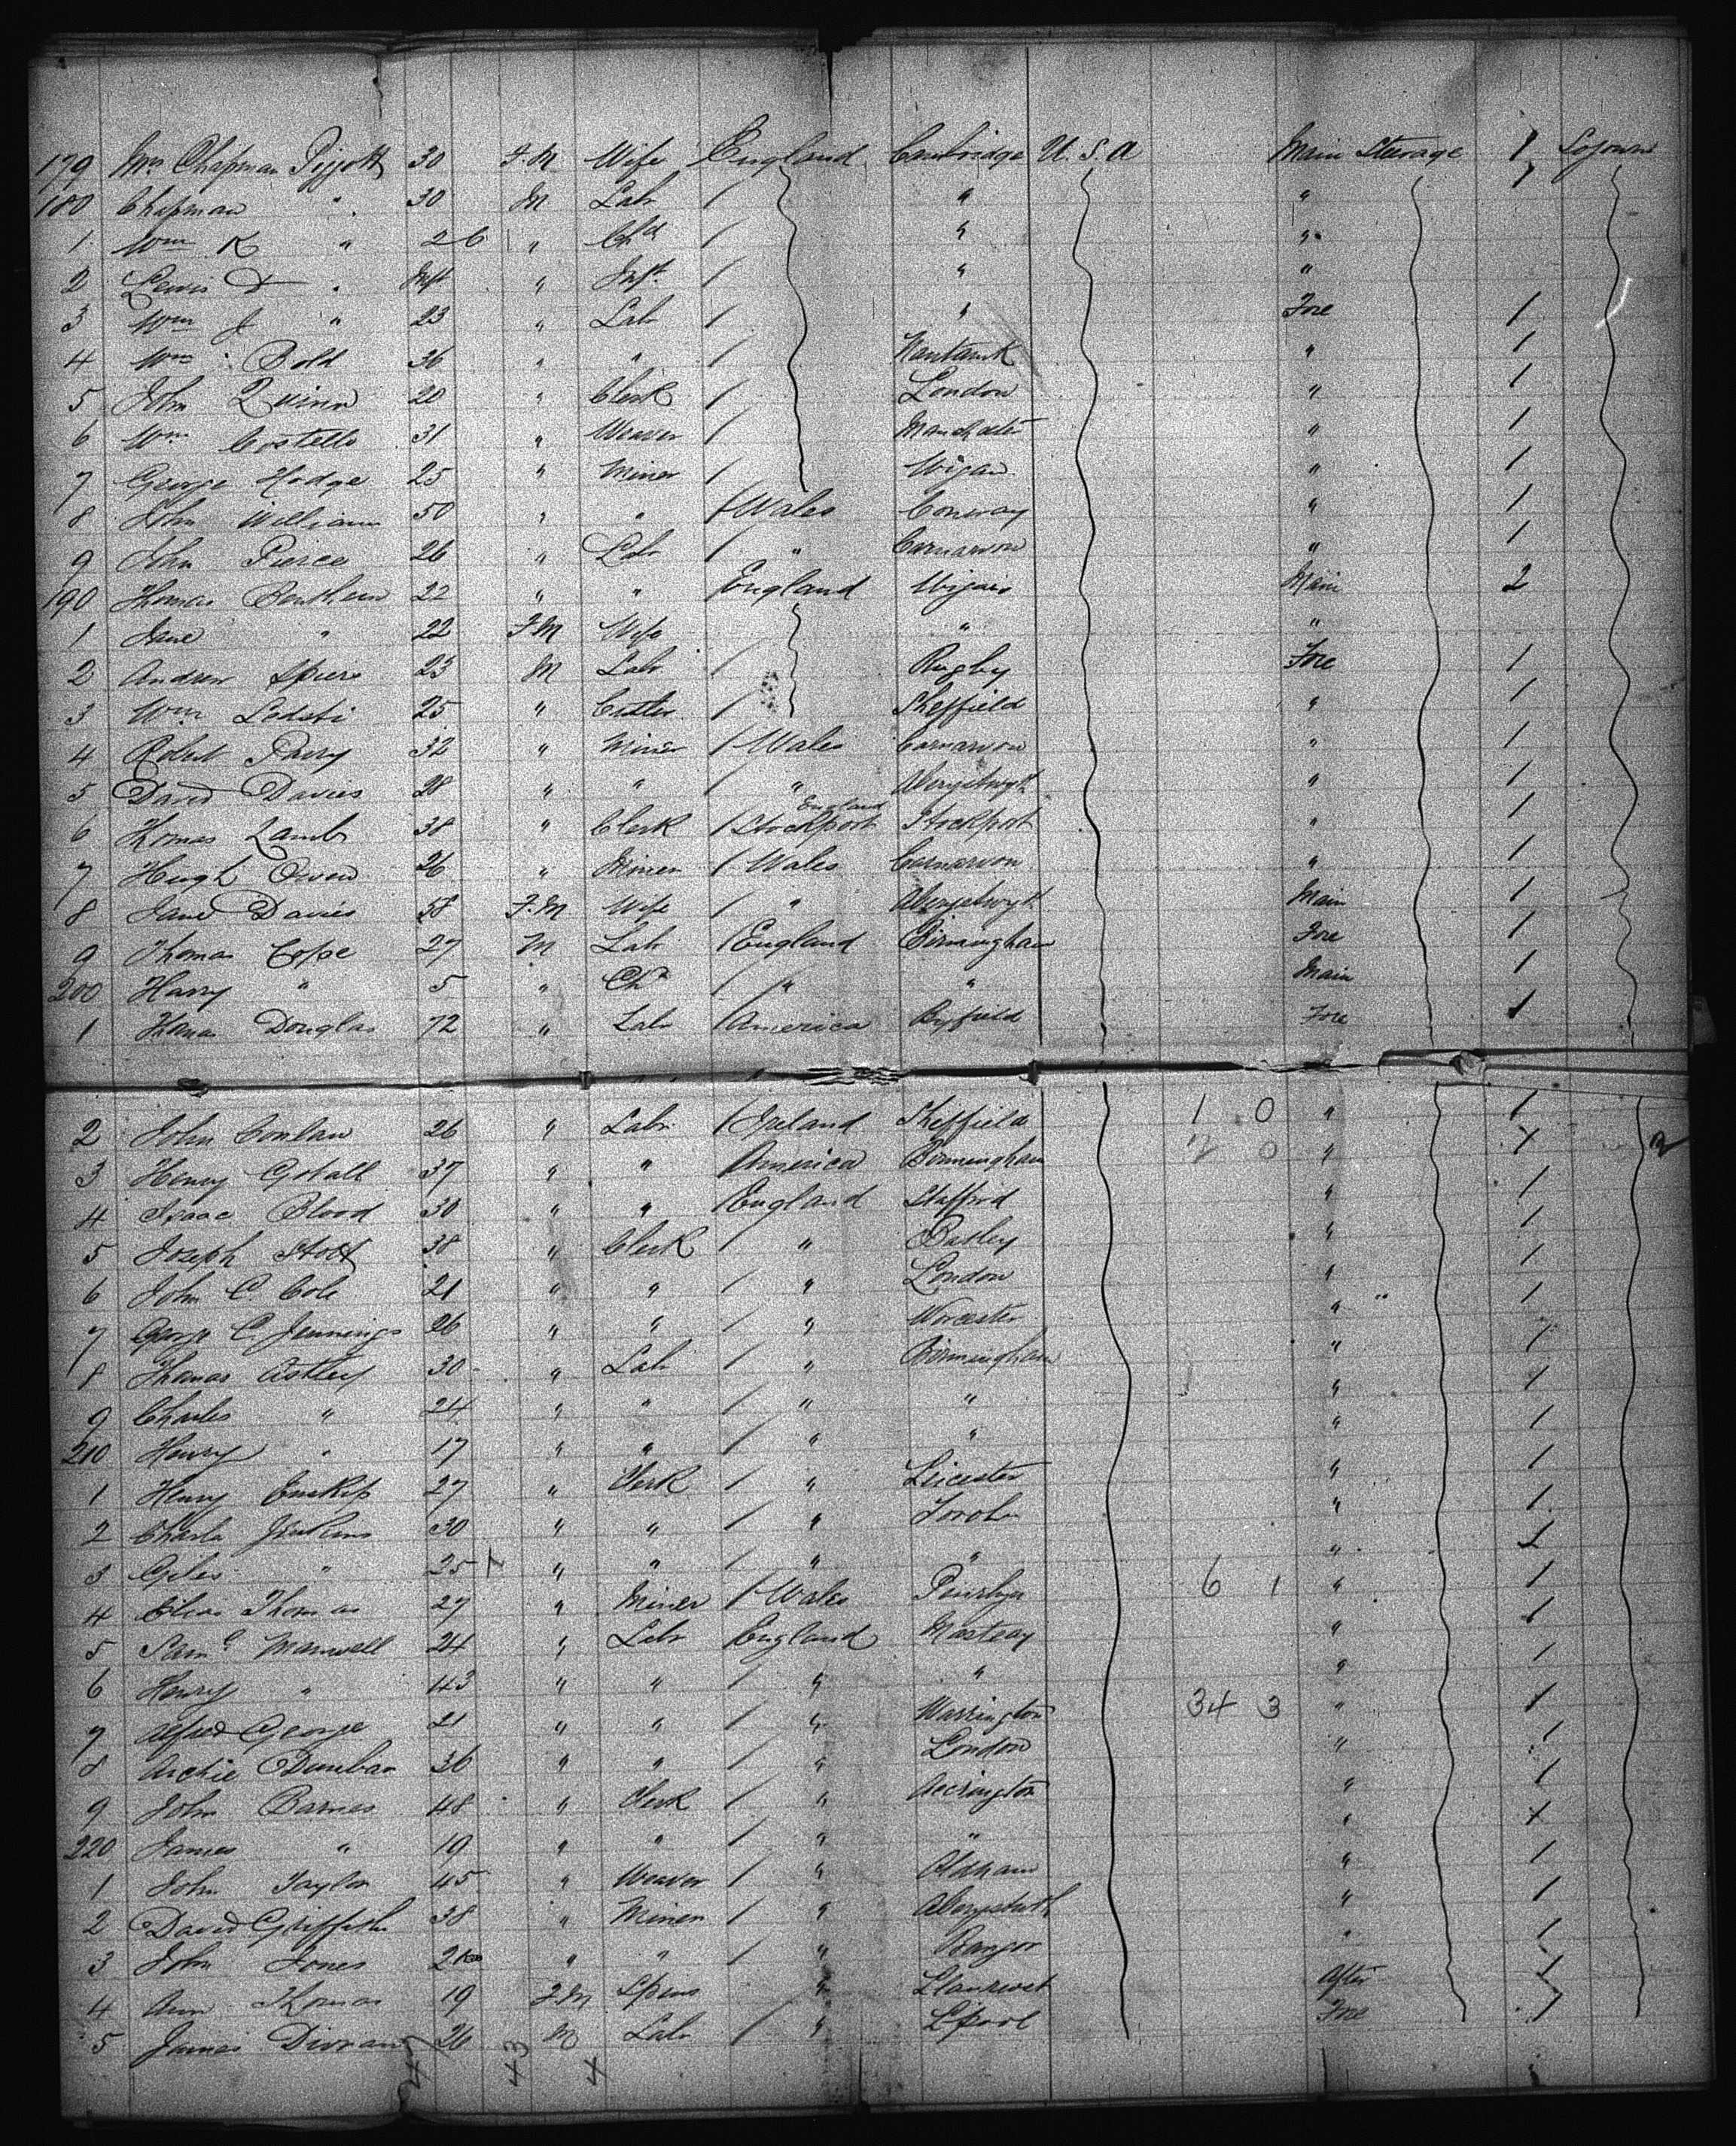 179 Mrs Chapman Pigott 30 F.M Wife England Cambridge U.S.A Main Sterage 1 Sojourn
180 Chapman " 30 M Lab / " "
1 Wm K " 2 6 " Chd / " "
2 Lewis D " Inft " Inft. / " "
3 Wm J " 23 " Lab / " Fore 1
4 Wm Bold 36 " " / "  1
5 John Quinn 20 " Clerk / London " 1
6 Wm Costello 31 " Weaver / Manchester " 1
7 George Hodge 25 " Miner / Wigan " 1
8 John Williams 50 " " / Wales Conway " 1
9 John Pierce 26 " Lab / " Carnarvon " 1
190 Thomas 22 " " England Wigan Main 2
1 Jane " 22 F.M Wife " "
2 Andrew Spiers 23 M Lab / Rugby Fore 1
3 Wm 25 " Cutler / Sheffield " 1
4 Robert Parry 32 " Miner / Wales Carnarvon " 1
5 David Davies 28 " " / " " 1
6 Thomas Lamb 38 " Clerk / Stockport England Stockport " 1
7 Hugh Owen 26 " Miner / Wales Carnarvon " 1
8 Jane Davies 58 F.M Wife / " Main 1
9 Thomas Cope 27 M Lab / England Birmingham Fore 1
200 Harry " 5 " Chd / " " Main 1
1 Thomas Douglas 72 " Lab / America Byfield Fore 1
2 John Conlan 26 " Lab / Ireland Sheffield 1 0 " 1
3 Henry 37 " " America Birmingham 2 0 " 2
4 Isaac Blood 30 " " England Stafford " 1
5 Joseph Stott 38 " Clerk / " " 1
6 John C. Cole 21 " " / " London " 1
7 George C. Jennings 26 " " / " Worcester " 1
8 Thomas Astley 30 " Lab / " Birmingham " 1
9 Charles " 24 " " / " " " 1
210 Henry " 17 " " / " " " 1
1 Henry 27 " Clerk / " Leicester " 1
2 Charles Jenkins 30 " " / " " 1
3 Giles " 25 " " / " " "
4 Thomas 27 " Miner / Wales 6 1 " 1
5 Saml Manwell 24 " Lab England " 1
6 Henry " 43 " " / " " " 1
7 Alfred George 21 " " / " Warrington 34 3 " 1
8 Archie Dunbar 36 " " / " London " 1
9 John Barnes 48 " Clerk / " Accrington " 1
220 James " 19 " " / " " "
1 John Taylor 45 " Weaver / " Oldham " 1
2 David Griffith 38 " Miner / " " 1
3 John Jones " " / " Bangor " 1
4 Ann Thomas 19 F.M " Llanrwst After
5 James 26 M Lab / " L'pool Fore 1
43 4